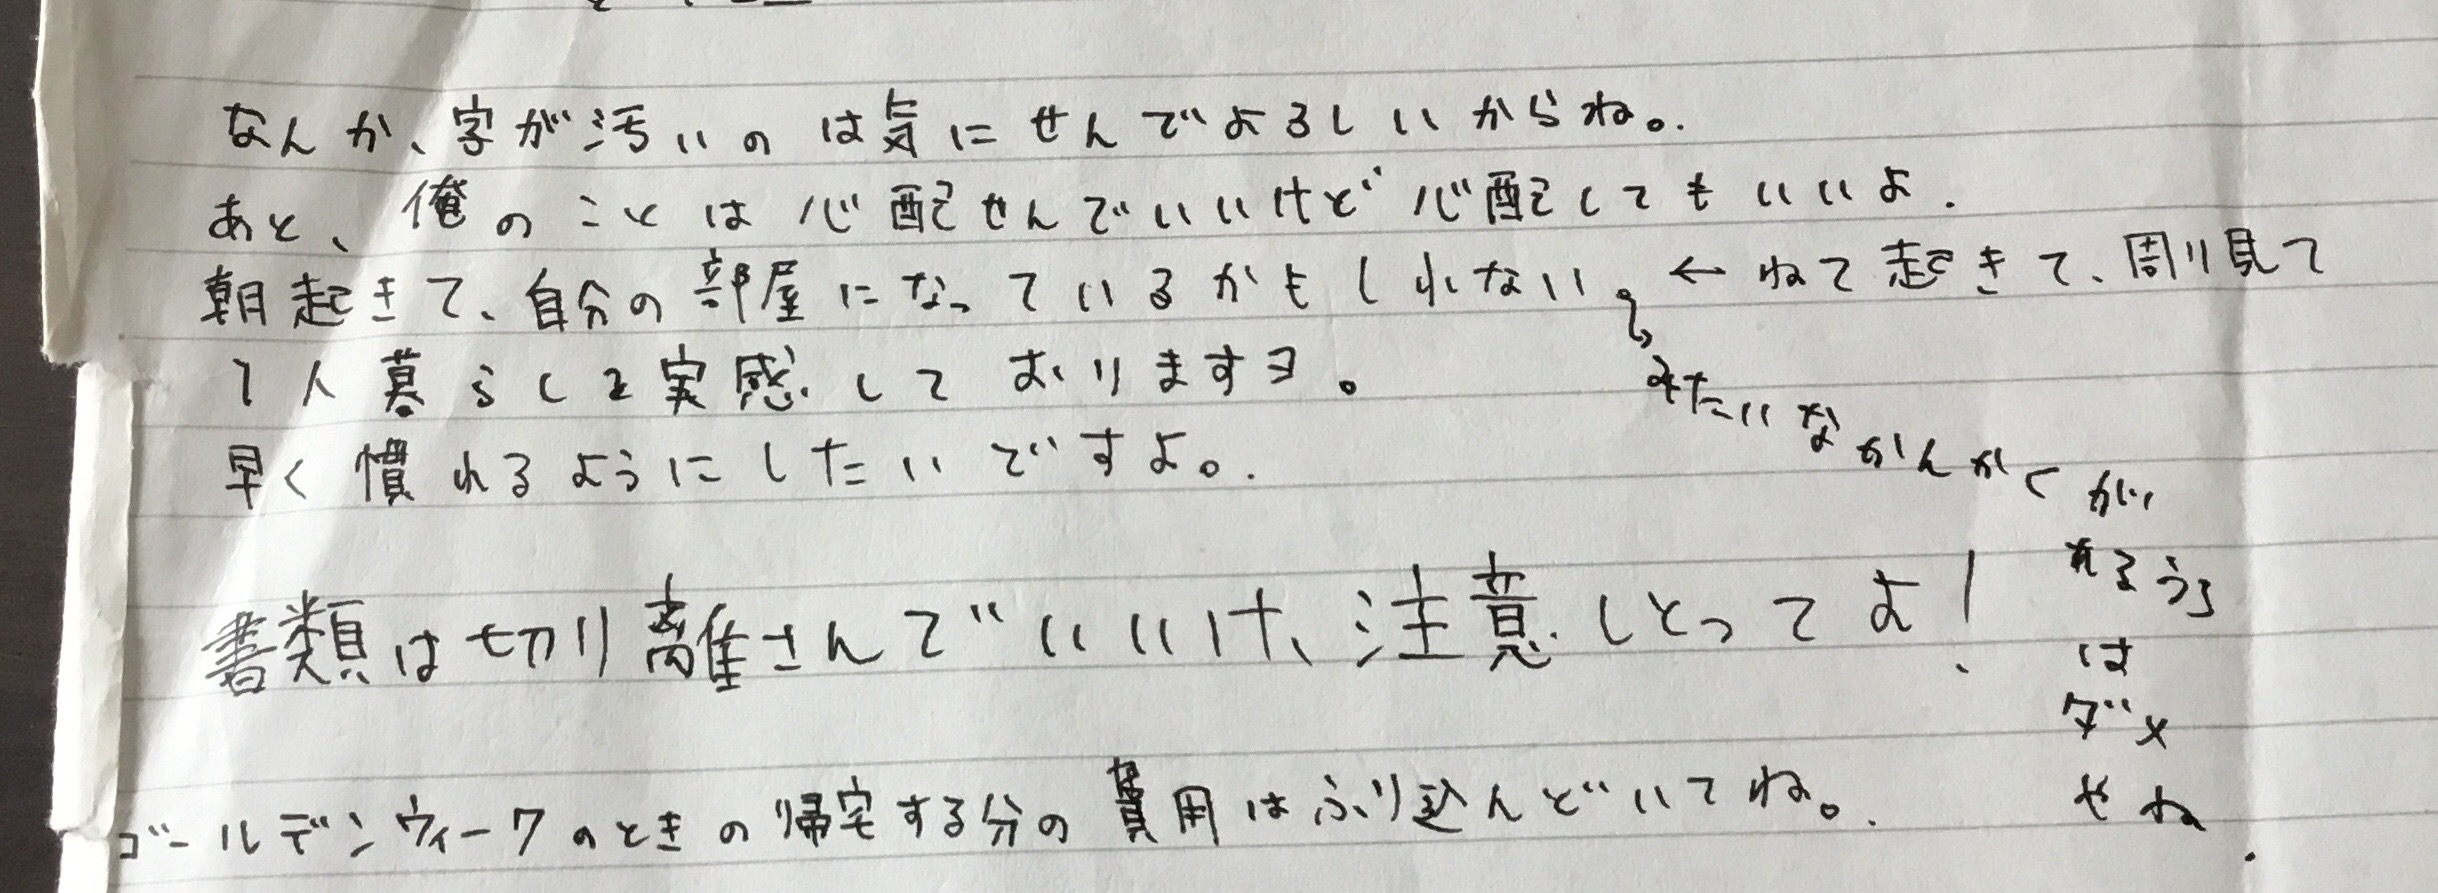 なんか、字が汚いのは気にせんでよろしいからね。
あと、俺のことは心配せんでいいけど心配してもいいよ.
朝起きて、自分の部屋になっているかもしれない。←ねて起きて、周り見て
みたいなかんかくが、
れるうち
は
ダメ
やね.
1人暮らしを実感しておりますヨ。
早く慣れるようにしたいですよ。
書類は切り離さんでいいけ、注意しとってよ!
ゴールデンウィークのときの帰宅する分の費用はふり込んどいてね。